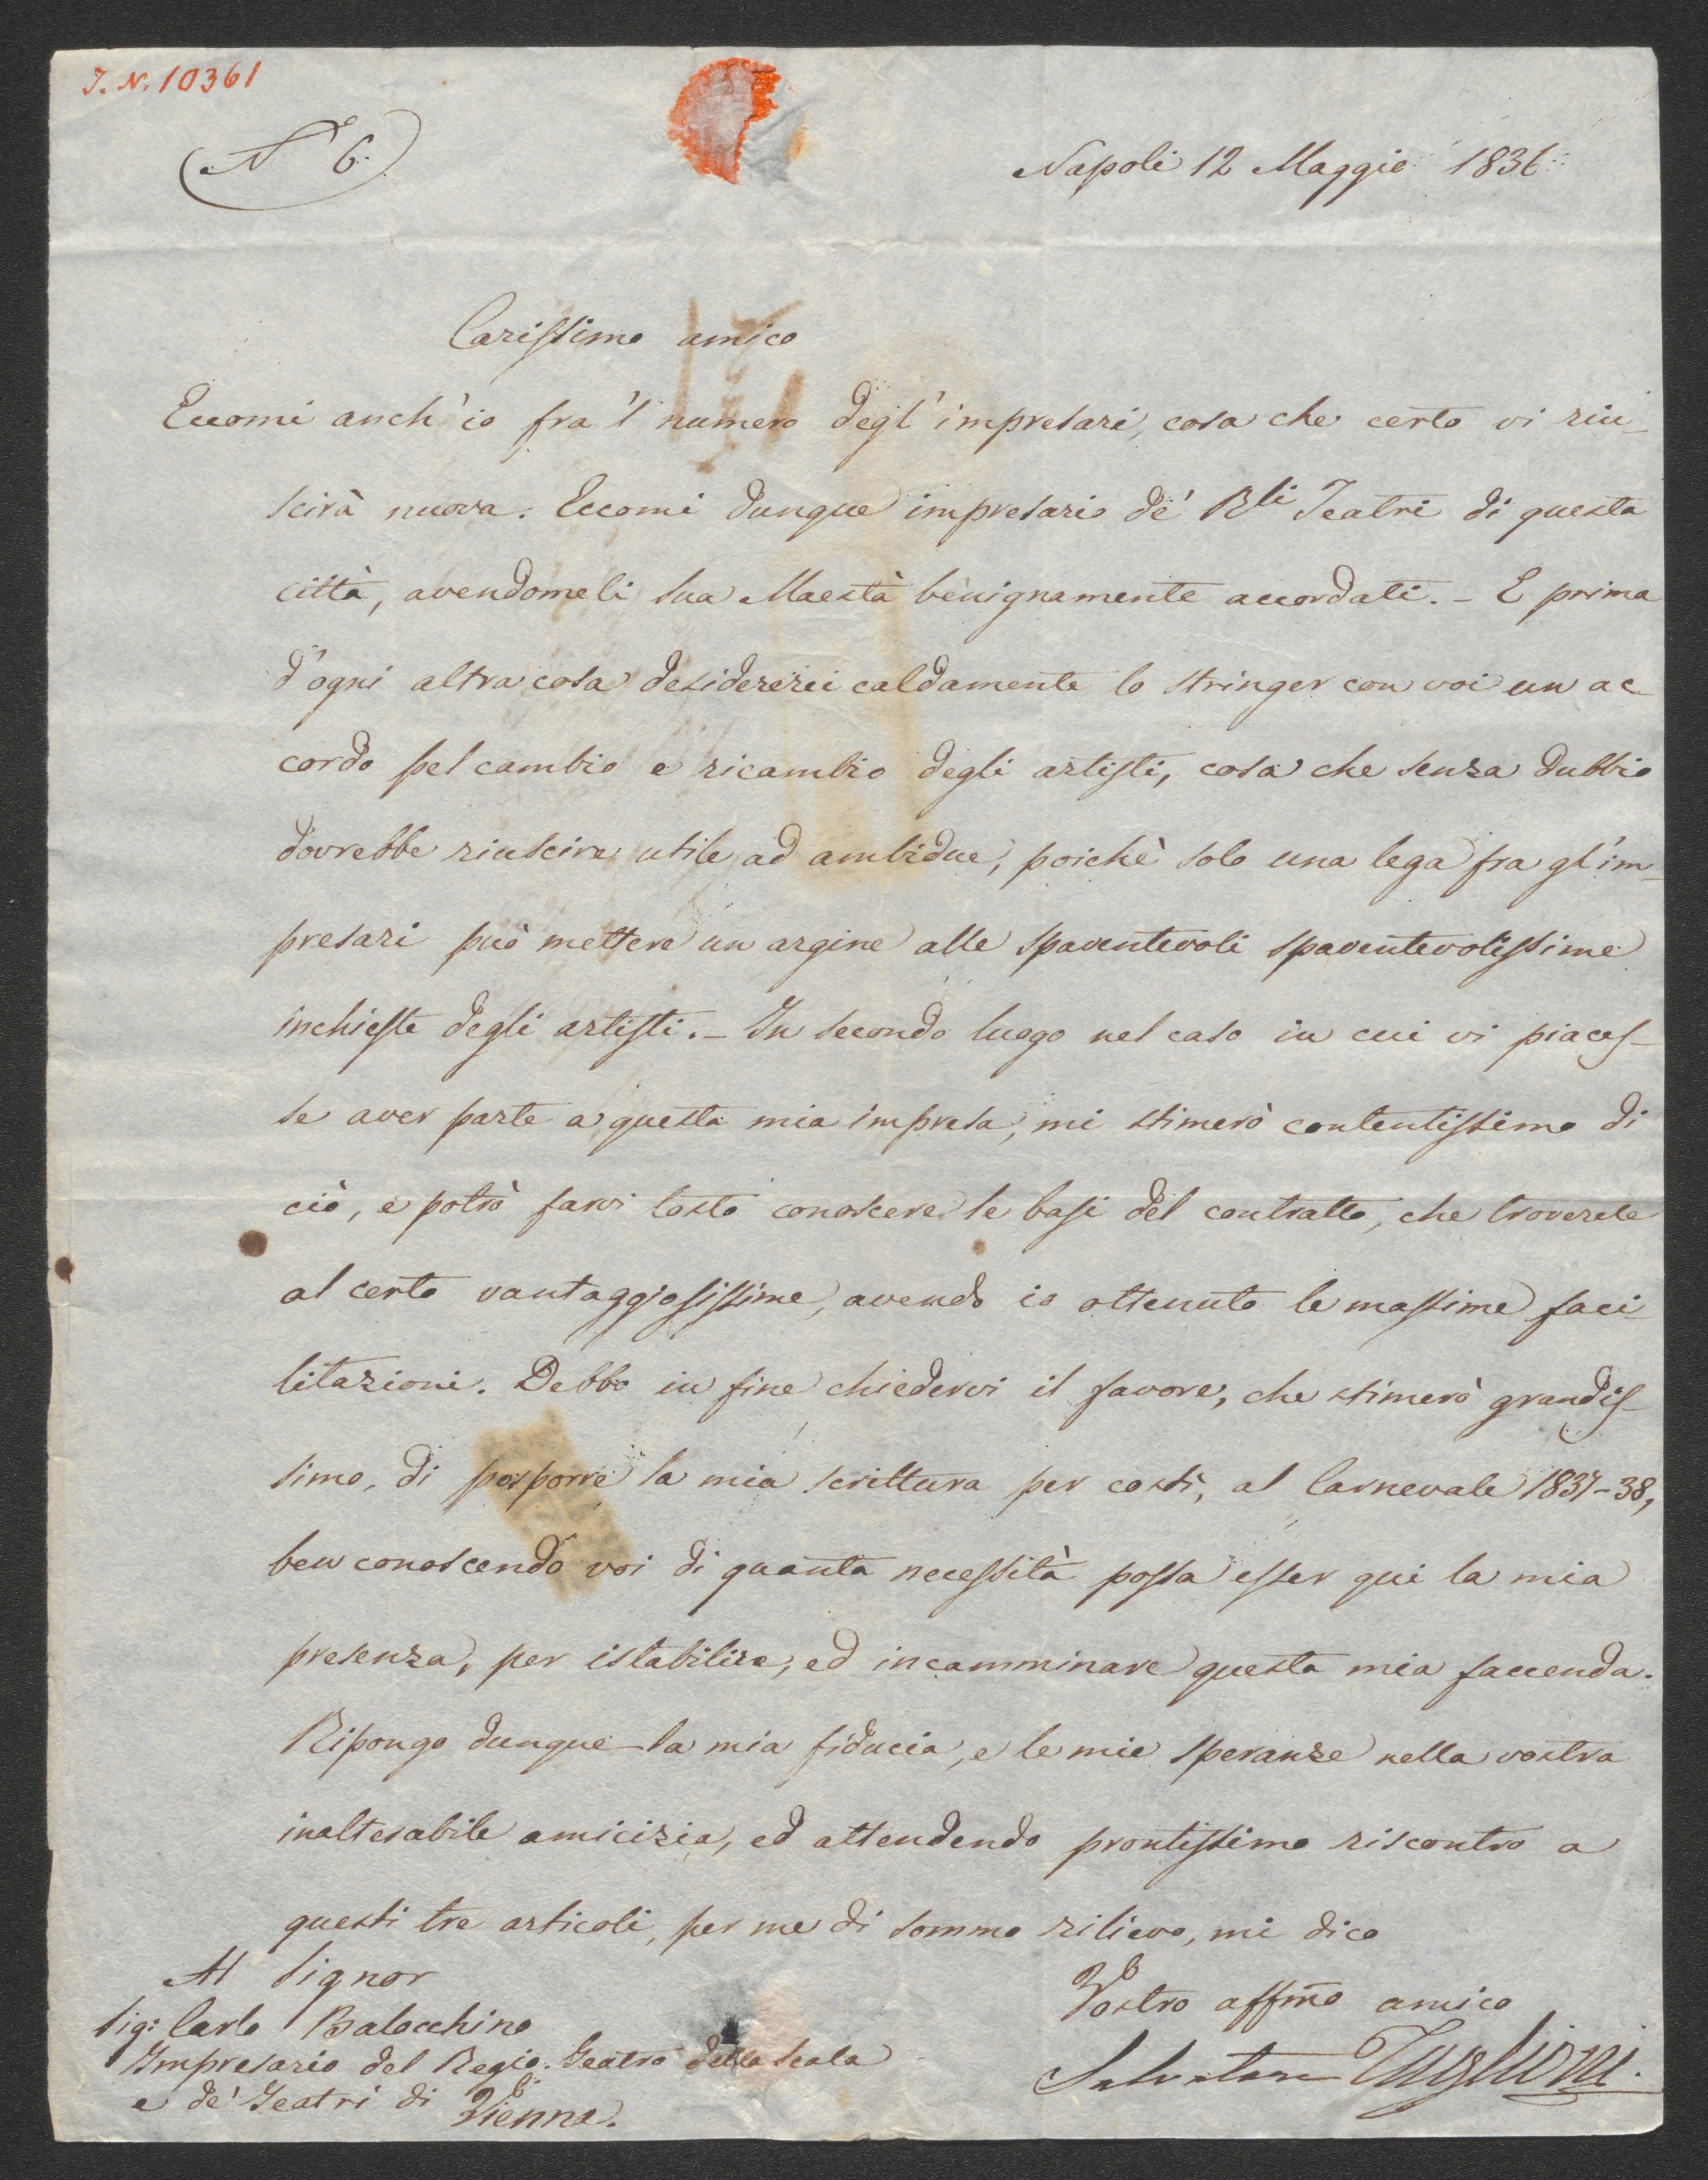 J. N. 10361
N 6.
Napoli 12 Maggio 1836
Carissimo amico
Eccomi anch'io fra 'l numero degl'impresari, cosa che certo vi riu-
scirà nuova. Eccomi dunque impresario de' Rli Teatri di questa
città, avendomeli Sua Maestà benignamente accordati. - E prima
d'ogni altra cosa desidererei caldamente lo stringer con voi un ac
cordo pel cambio e ricambio degli artisti, cosa che senza dubbio
dovrebbe riuscire utile ad ambidue, poichè solo una lega fra gl'im-
presari può mettere un argine alle spaventevoli spaventevolissime
inchieste degli artisti. - In secondo luogo nel caso in cui vi piaces-
se aver parte a questa mia impresa, mi stimerò contentissimo di
ciò, e potrò farvi tosto conoscere le basi del contratto, che troverete
al certo vantaggiosissime, avendo io ottenuto le massime faci-
litazioni. Debbo in fine chiedervi il favore, che stimerò grandis-
simo, di posporre la mia scrittura per costì, al Carnevale 1837-38,
ben conoscendo voi di quanta necessità possa esser qui la mia
presenza, per istabilire, ed incamminare questa mia faccenda.
Ripongo dunque la mia fiducia, e le mie speranze nella vostra
inalterabile amicizia, ed attendendo prontissimo riscontro a
questi tre articoli, per me di sommo rilievo, mi dico
Al Signor
Sig: Carlo Balocchino
Impresario del Regio Teatro della Scala
e de' Teatri di Vienna.
Vostro affmo amico
Salvatore Taglioni.